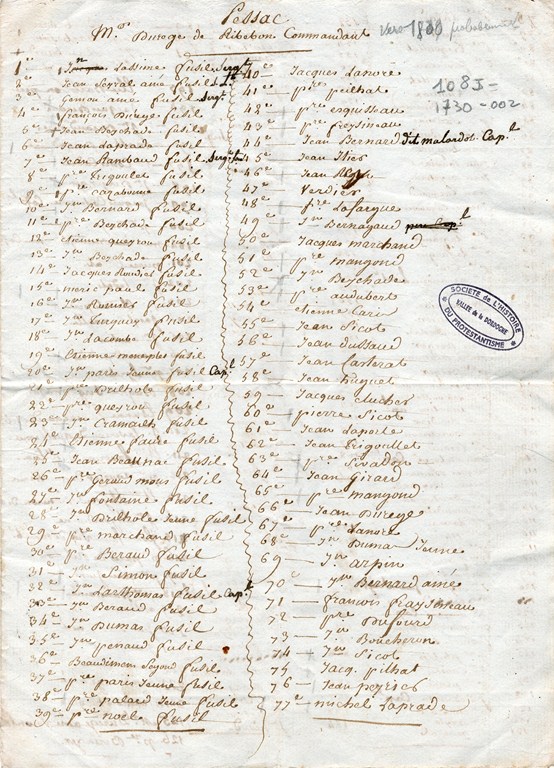 Pessac
Mr. Durege de Ribebon Commandant
vers 1800 probablement
108J-
1730-002
1e — Jn Lassime fusil Sergt
2e — Jean Seyral ainé fusil
3e — Geneau ainé fusil Sergt
4e — François Durege fusil
5e — Jean Deychade fusil
6e — Jean Laprada fusil
7e — Jean Rambaud fusil
8e — pre Trigoulet fusil
9e — pre Cazabonne fusil
10e — Jn Bernard fusil
11e — pre Deychade fusil
12e — etienne queyrou fusil
13e — Jn Deychade fusil
14e — Jacques Rumier fusil
15e — meric paul fusil
16e — Jn Rumier fusil
17e — Jn Turguay fusil
18e — Jn Lacombe fusil
19e — Etienne menesplier fusil
20e — Jn paris Jeune fusil Capl
21e — pre Drilhole fusil
22e — pre queyrou fusil
23e — Jn Cramailh fusil
24e — Etienne faure fusil
25e — Jean Beaunac fusil
26e — pre Geraud mous fusil
27e — Jn fontaine fusil
28e — Jn Drilhole Jeune fusil
29e — pre marchand fusil
30e — pre Beraud fusil
31e — Jn Simon fusil
32e — Jn Lasthomas fusil Capl
33e — Jn Beraud fusil
34e — Jn Dumas fusil
35e — Jn penaud fusil
36e — Beaudimens Segond fusil
37e — pre paris Jeune fusil
38e — pre palard Jeune fusil
39e — pre noël fusil
40e — Jacques Lanore
41e — pre peilhat
42e — pre esquisseau
43e — pre freysineau
44e — Jean Bernard dit malardot Capl
45e — Jean Slies
46e — Jean
47e — Verdier
48e — pre Lafargue
49e — Jn Bernagaud
50e — Jacques marchand
51e — pre mangond
52e — Jn Deychade
53e — pre audubert
54e — etienne Caris
55e — Jean Sicot
56e — Jean Dussaud
57e — Jean Casterat
58e — Jean huguet
59 — Jacques Clucher
60e — pierre Sicot
61e — Jean Laporte
62e — Jean Trigoullet
63e — pre Sivadon
64e — Jean Girard
65e — pre mangond
66e — Jean Durege
67e — pre Lanore
68e — Jn Dumas Jeune
69 — Jn arpin
70e — Jn Bernard ainé
71 — francois fraysseteau
72 — pre Dufourd
73 — Jn Boucheron
74 — Jn Sicot
75 — Jacq. pilhat
76 — Jean peyrier
77e — michel Laprade
SOCIETE de L'HISTOIRE
VALLEE de la DORDOGNE
DU PROTESTANTISME